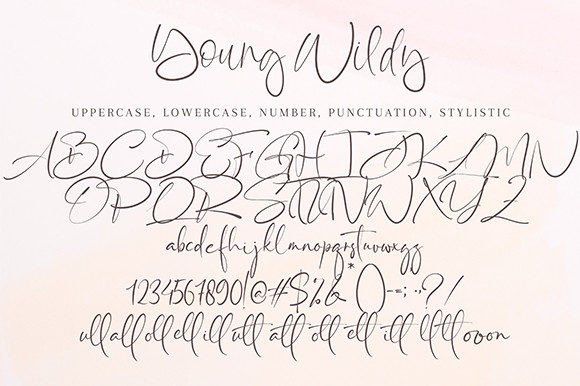 Young Wildy
UPPERCASE, LOWERCASE, NUMBER, PUNCTUATION, STYLISTIC
ABCDEFGHIJKLMN
OPQRSTUVWXYZ
abcdefghijklmnopqrstuvwxyz
1234567890!@#$%&*()-=;:,.?/
ull all oll ell ill utt att ott ett itt